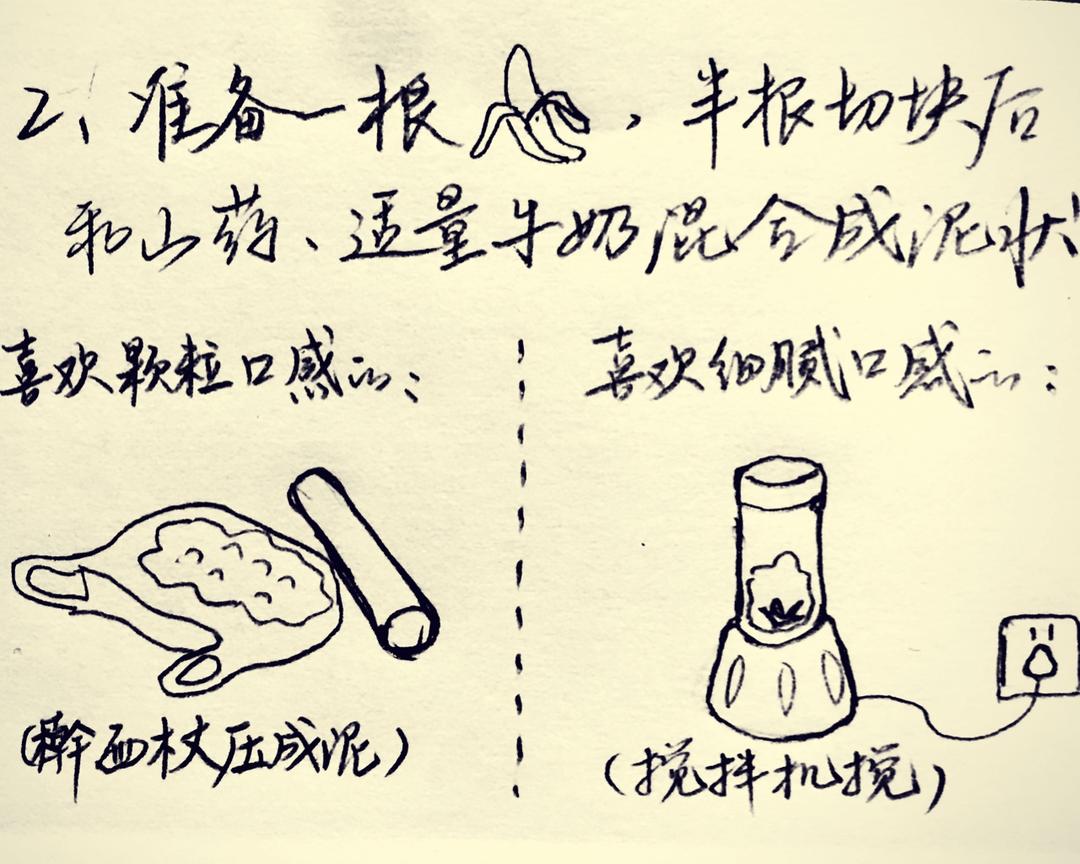 2、准备一根，半根切块后
和山药、适量牛奶混合成泥状
喜欢颗粒口感的：
喜欢细腻口感的：
（擀面杖压成泥）
（搅拌机搅）